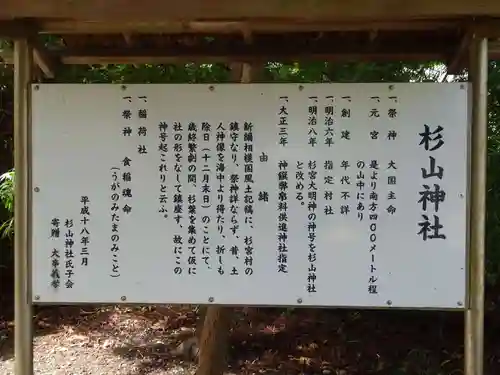 杉山神社
一、祭神 大国主命
一、元宮 是より南方四〇〇メートル程
の山中にあり
一、創建 年代不詳
一、明治六年 指定村社
一、明治八年 杉宮大明神の神号を杉山神社
と改める。
一、大正三年 神饌幣帛料供進神社指定
由緒
新編相模国風土記稿に、杉宮村の
鎮守なり、祭神詳ならず、昔、土
人神像を海中より得たり、折しも
除日(十二月末日)のことにて、
歳終繁劇の間、杉葉を集めて仮に
社の形をなして鎮座す、故にこの
神号起これりと云ふ。
一、稲荷社
一、祭神 食稲魂命
(うがのみたまのみこと)
平成十八年三月
杉山神社氏子会
寄贈 大事義孝